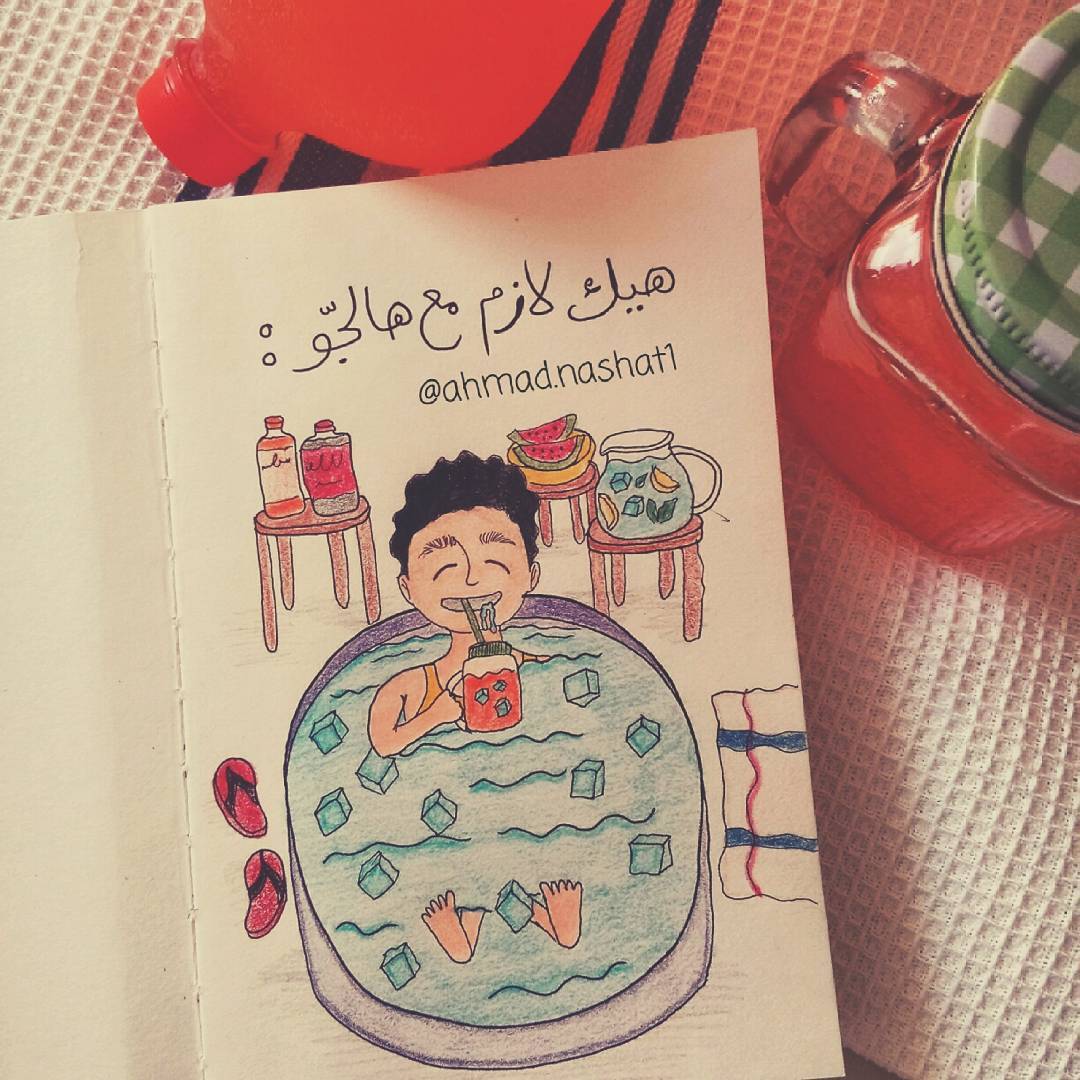 هيك لازم مع هالجّو :
@ahmad.nashat1